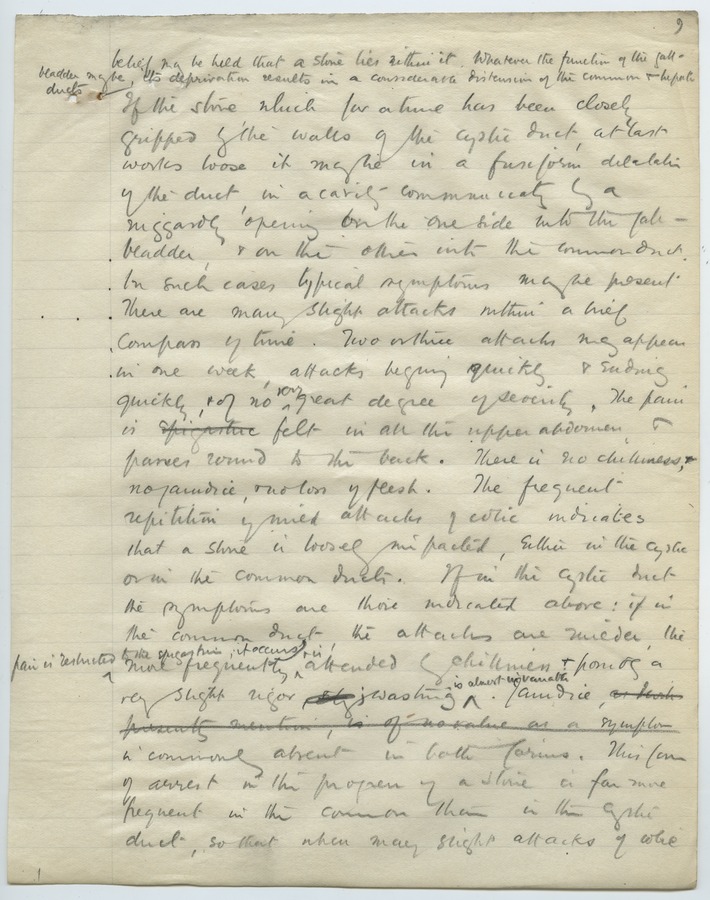 9
belief may be held that a stone lies within it. Whatever the function of the gall-
bladder may be, its deprivation results in a considerable distension of the common & hepatic
ducts
If the stone which for a time has been closely
gripped by the walls of the cystic duct, at last
works loose it may lie in a fusiform dilatation
of the duct, in a cavity communicating by a
niggardly opening on the one side into the gall-
bladder, & on the other into the common duct.
In such cases typical symptoms may be present
There are many slight attacks within a brief
compass of time. Two or three attacks may appear
in one week, attacks beginning quickly & ending
quickly, & of no very great degree of severity. The pain
is epigastric felt in all the upper abdomen, &
passes round to the back. There is no chilliness, &
no jaundice, & no loss of flesh. The frequent
repitition of mild attacks of colic indicates
that a stone is loosely impacted, either in the cystic
or in the common ducts. If in the cystic duct
the symptoms are those indicated above: if in
the common duct, the attacks are milder, the
pain is restricted to the epigastrium, it occurs
more frequently, & is attended by chilliness & possibly a
very slight rigor, wasting is almost invariable. Jaundice, as
presently mention, is of no value as a symptom
is commonly absent in both forms. This form
of arrest in the progress of a stone is far more
frequent in the common than in the cystic
duct, so that when many slight attacks of colic